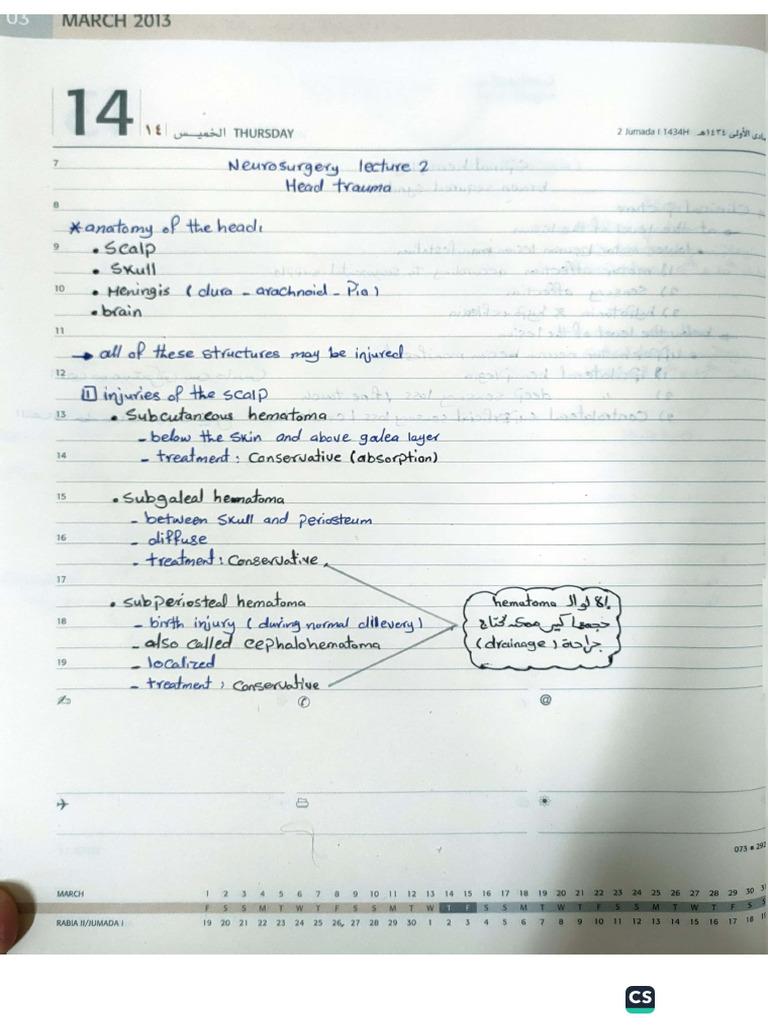 03 MARCH 2013
14 ١٤ الخميس THURSDAY
2 Jumada I 1434H الأولى ١٤٣٤هـ
7
Neurosurgery lecture 2
Head trauma
8
* anatomy of the head:
9 • Scalp
• Skull
10 • Meningis ( dura - arachnoid - Pia )
• brain
11
→ all of these structures may be injured
12
1 injuries of the scalp
13 • Subcutaneous hematoma
- below the skin and above galea layer
14 - treatment : Conservative (absorption)
15 • Subgaleal hematoma
- between skull and periosteum
16 - diffuse
- treatment : Conservative
17
• subperiosteal hematoma
18 - birth injury ( during normal dilevery )
- also called cephalohematoma
19 - localized
- treatment : Conservative
hematoma
حجمها كبير ممكن تحتاج
جراحة (drainage)
@
073 • 292
MARCH 1 2 3 4 5 6 7 8 9 10 11 12 13 14 15 16 17 18 19 20 21 22 23 24 25 26 27 28 29 30 31
F S S M T W T F S S M T W T F S S M T W T F S S M T W T F S S
RABIA II/JUMADA I 19 20 21 22 23 24 25 26 27 28 29 30 1 2 3 4 5 6 7 8 9 10 11 12 13 14 15 16 17 18 19
CS